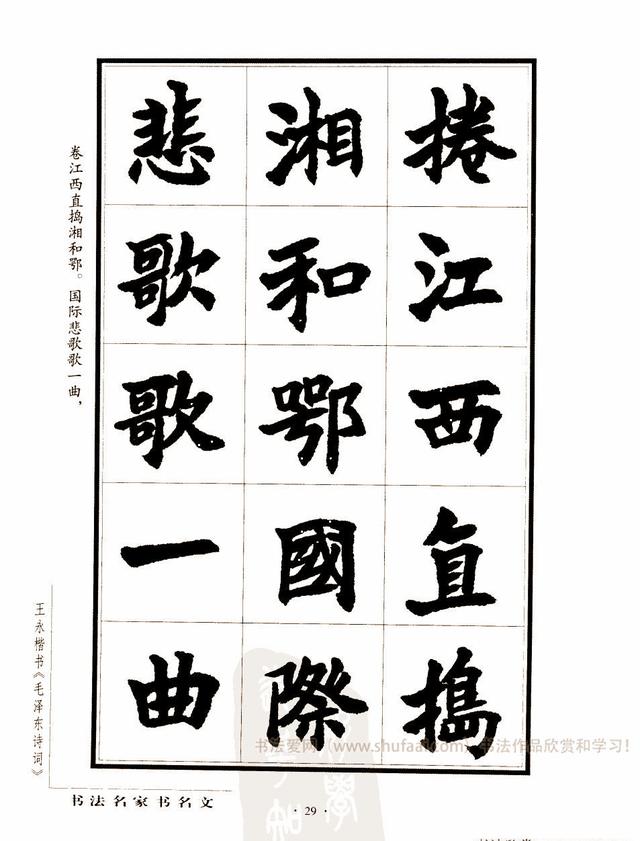 捲江西直搗
湘和鄂國際
悲歌歌一曲
卷江西直捣湘和鄂。国际悲歌歌一曲，
王永楷书《毛泽东诗词》
书法名家书名文
·29·
书法爱网（www.shufaai.com）书法作品欣赏和学习！